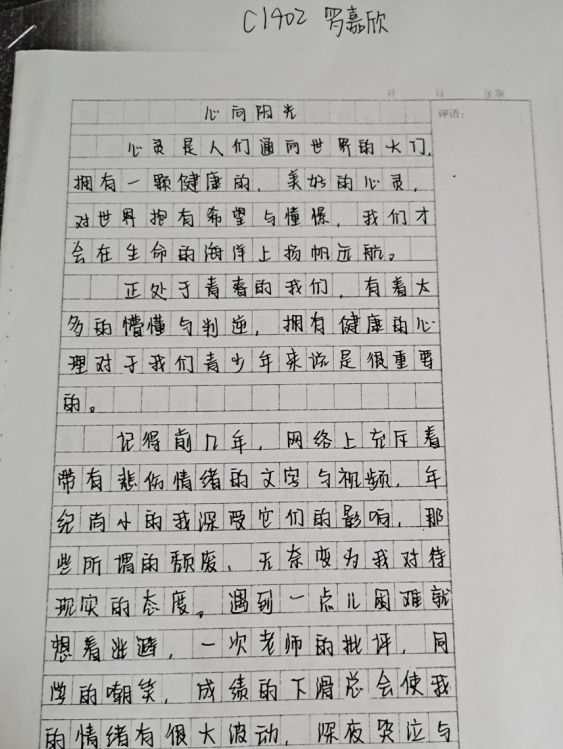 C1402 罗嘉欣
月 日 星期
评语:
心向阳光
心灵是人们通向世界的大门,
拥有一颗健康的,美好的心灵,
对世界抱有希望与憧憬,我们才
会在生命的海洋上扬帆远航。
正处于青春的我们,有着太
多的懵懂与判逆,拥有健康的心
理对于我们青少年来说是很重要
的。
记得前几年,网络上充斥着
带有悲伤情绪的文字与视频,年
纪尚小的我深受它们的影响,那
些所谓的颓废、无奈变为我对待
现实的态度。遇到一点儿困难就
想着逃避,一次老师的批评,同
学的嘲笑,成绩的下滑总会使我
的情绪有很大波动,深夜哭泣与